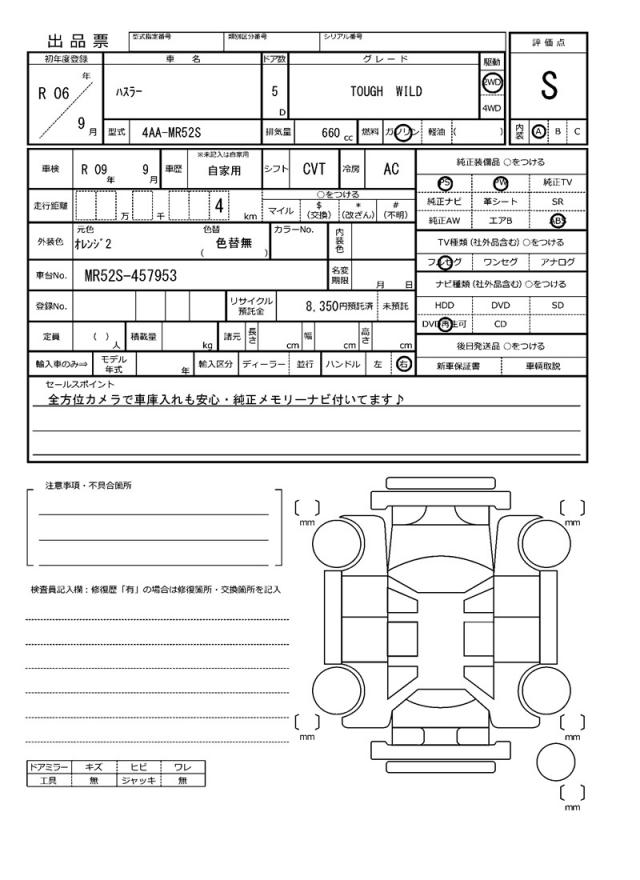 出品票 型式指定番号 類別区分番号 シリアル番号
評価点
初年度登録 車名 ドア数 グレード 駆動
R 06 年 ハスラー 5 D TOUGH WILD 2WD S
9 月 4WD
型式 4AA-MR52S 排気量 660 cc 燃料 ガソリン 軽油 ( ) 内装 A B C
車検 R 09 年 9 月 車歴 ※未記入は自家用 自家用 シフト CVT 冷房 AC 純正装備品 ○をつける
PS PW 純正TV
走行距離 万 千 4 km ○をつける 純正ナビ 革シート SR
マイル $ (交換) * (改ざん) # (不明) 純正AW エアB ABS
外装色 元色 オレンジ2 色替 色替無 ( ) カラーNo. 内装色 TV種類 (社外品含む) ○をつける
フルセグ ワンセグ アナログ
車台No. MR52S-457953 名変期限 月 日 ナビ種類 (社外品含む) ○をつける
登録No. リサイクル預託金 8,350円預託済 未預託 HDD DVD SD
DVD再生可 CD
定員 ( ) 人 積載量 kg 諸元 長さ cm 幅 cm 高さ cm 後日発送品 ○をつける
輸入車のみ⇒ モデル年式 年 輸入区分 ディーラー 並行 ハンドル 左 右 新車保証書 車輌取説
セールスポイント
全方位カメラで車庫入れも安心・純正メモリーナビ付いてます♪
注意事項・不具合箇所
mm mm
検査員記入欄：修復歴「有」の場合は修復箇所・交換箇所を記入
mm mm
ドアミラー キズ ヒビ ワレ
工具 無 ジャッキ 無
mm